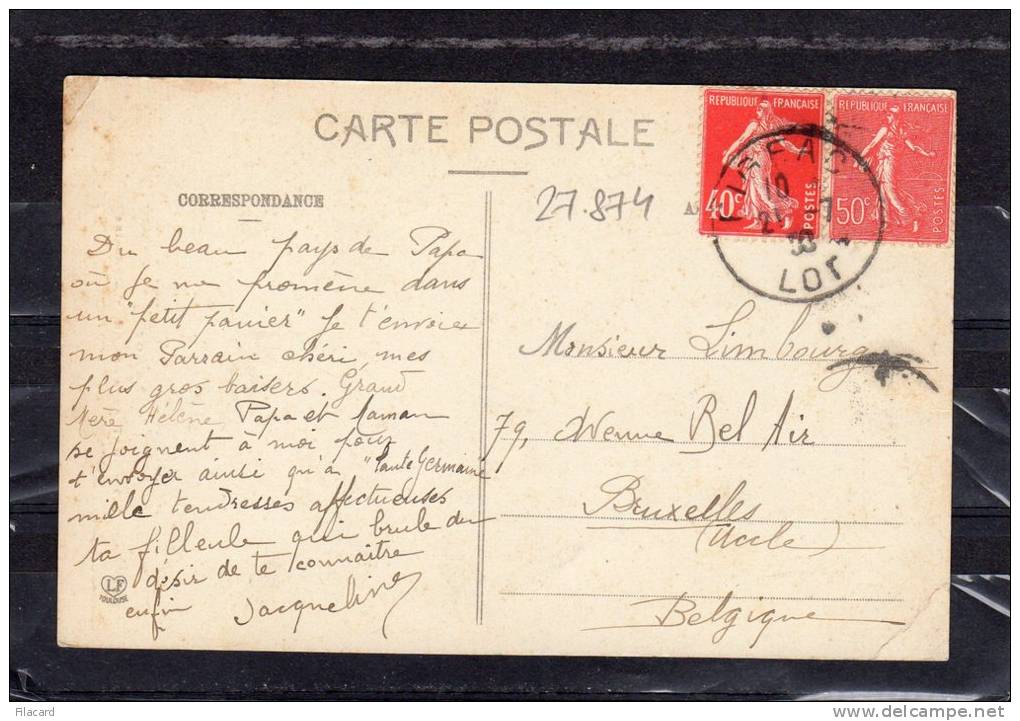 CARTE POSTALE
CORRESPONDANCE
27.874
REPUBLIQUE FRANÇAISE
40c
POSTES
REPUBLIQUE FRANÇAISE
50c
POSTES
FIGEAC
10
21 7
LOT
Du beau pays de Papa
où je me promène dans
un "petit panier" je t'envoie
mon Parrain chéri mes
plus gros baisers. Grand
Mère Hélène Papa et Maman
se joignent à moi pour
t'envoyer ainsi qu'à "Tante Germaine
mille tendresses affectueuses
ta filleule qui brule du
désir de te connaitre
enfin Jacqueline
Monsieur Limbourg
79, Avenue Bel Air
Bruxelles
(Uccle)
Belgique
LF
TOULOUSE
http://filacard.delcampe.net
Filacard